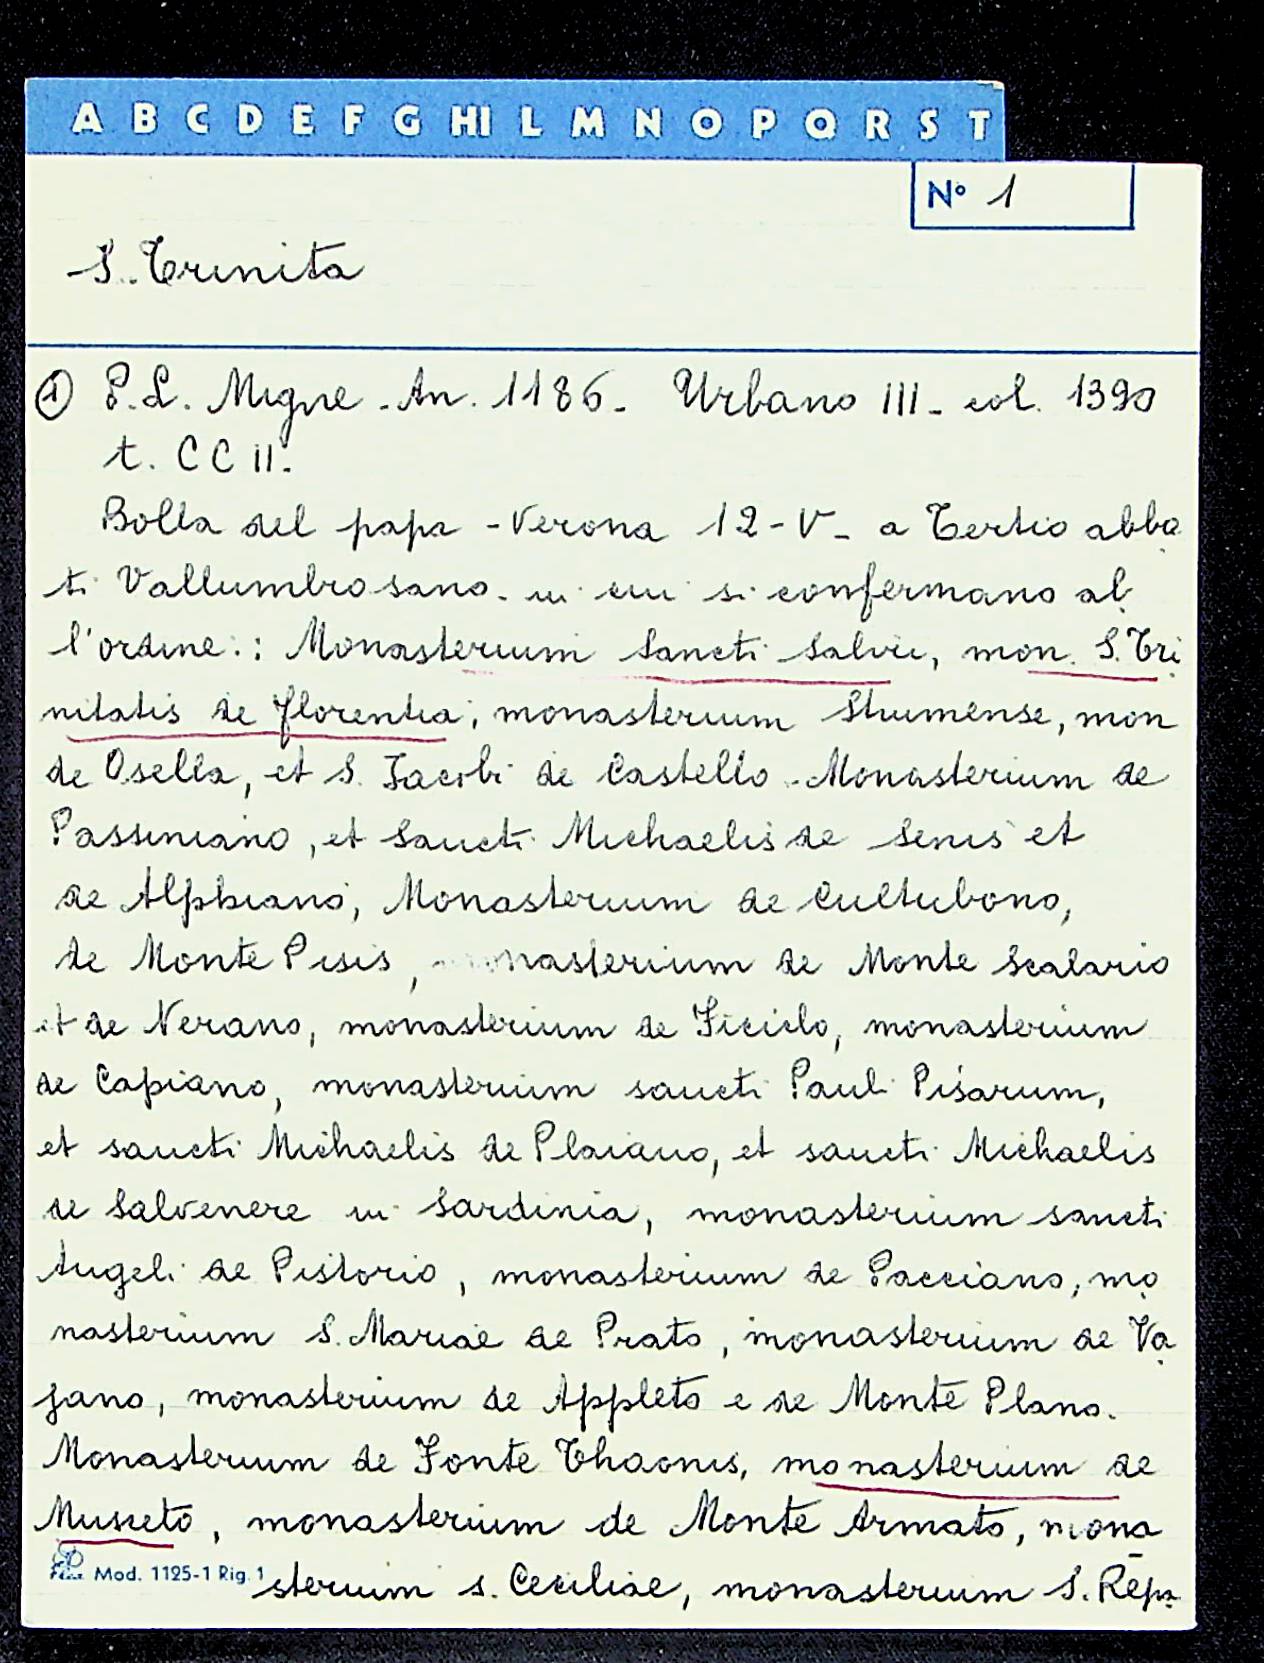 A B C D E F G HI L M N O P Q R S T
N° 1
S. Trinita
① P.L. Migne - An. 1186 - Urbano III - col. 1390
t. CC II.
Bolla del papa - Verona 12-V - a Tertio abba
ti Vallumbrosano - in cui si confermano al
l'ordine: : Monasterium Sancti Salvii, mon. S. Tri
nitatis de Florentia, monasterium Strumense, mon
de Osella, et S. Jacobi de Castello - Monasterium de
Passiniano, et Sancti Michaelis de Senis et
de Alphiano, Monasterium de Cultubono,
de Monte Pisis, monasterium de Monte Scalario
et de Nerano, monasterium de Ficiclo, monasterium
de Capiano, monasterium sancti Pauli Pisarum,
et sancti Michaelis de Plaiano, et sancti Michaelis
de Salvenere in Sardinia, monasterium sancti
Angeli de Pistorio, monasterium de Pacciano, mo
nasterium S. Mariae de Prato, monasterium de Va
jano, monasterium de Appleto e de Monte Plano.
Monasterium de Fonte Thaonis, monasterium de
Musceto, monasterium de Monte Armato, mona
Mod. 1125-1 Rig. 1
sterium s. Ceciliae, monasterium S. Repa